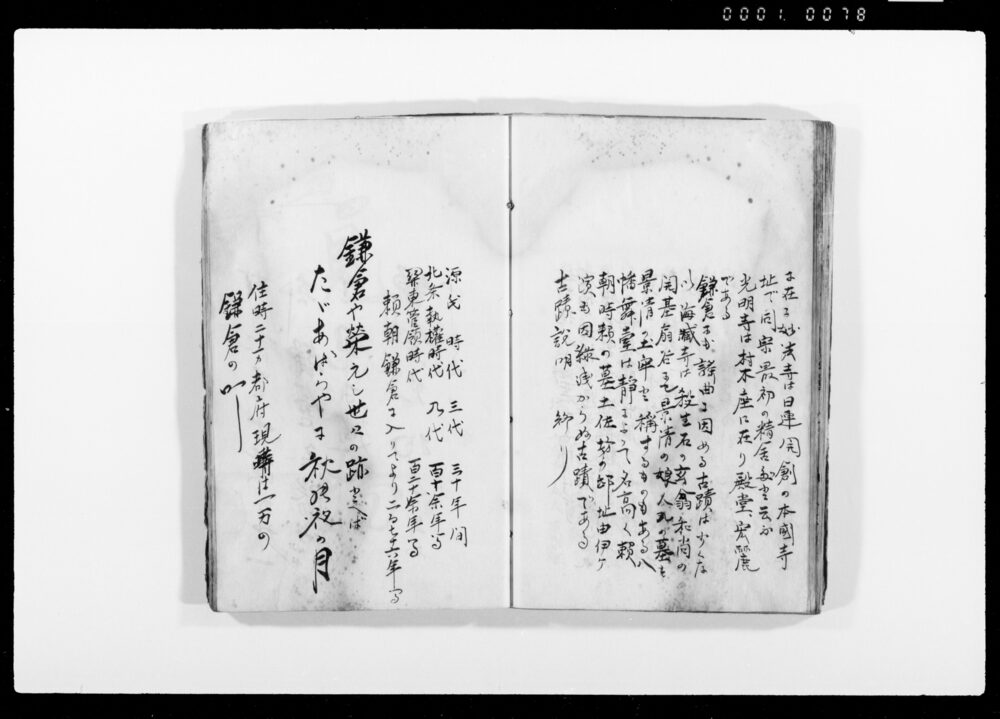 0001 0078
に在る妙法寺は日蓮開創の本國寺
址で同宗最初の精舎と云ふ
光明寺は材木座に在り殿堂宏麗
である
鎌倉には謡曲に因める古蹟は少くな
い海蔵寺は殺生石の玄翁和尚の
開基扇谷には景清の娘人丸の墓
景清の土牢と稱するものもある八
幡舞堂は静によつて名高く頼
朝時頼の墓土佐坊の邸址由伊ヶ
濱も因縁浅からぬ古蹟である
古蹟説明 終り
源氏時代 三代 三十年間
北条執権時代 九代 百十余年
関東管領時代 百二十余年
頼朝鎌倉に入りてより二百七十六年
鎌倉や榮元し世々の跡とへば
たゞあばらやに秋の夜の月
往時二十万都府現時は一万の
鎌倉の町